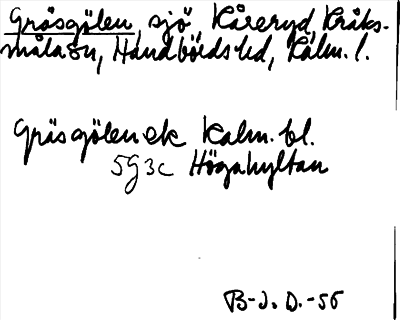 Gräsgölen sjö, Kåreryd, Kråks-
måla sn, Handbörds hd, Kalm. l.
Gräsgölen ek Kalm. bl.
5g3c Högahyltan
B-J. D. -56